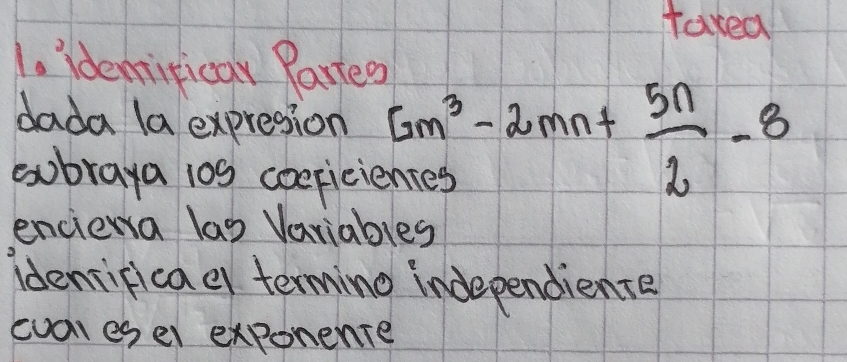 tarea
1. identificar Partes
dada la expresion 5m³ - 2mn + 5n/2 - 8
subraya los coeficientes
encierra las Variables
identifica el termino independiente
cual es el exponente